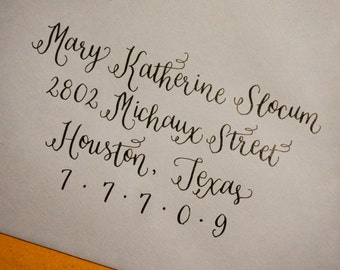 Mary Katherine Slocum
2802 Michaux Street
Houston, Texas
7 · 7 · 7 · 0 · 9